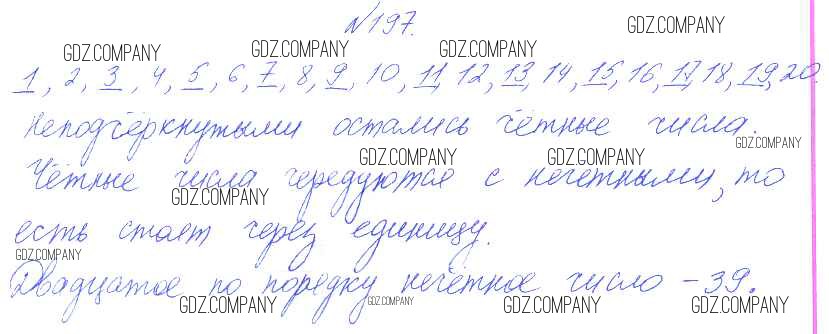 №197.
GDZ.COMPANY
GDZ.COMPANY GDZ.COMPANY GDZ.COMPANY
1, 2, 3, 4, 5, 6, 7, 8, 9, 10, 11, 12, 13, 14, 15, 16, 17, 18, 19, 20.
Неподчёркнутыми остались чётные числа.
GDZ.COMPANY
GDZ.COMPANY GDZ.GOMPANY
Чётные числа чередуются с нечетными, то
GDZ.COMPANY
есть стоят через единицу.
GDZ.COMPANY
Двадцатое по порядку нечётное число – 39.
GDZ.COMPANY GDZ.COMPANY GDZ.COMPANY GDZ.COMPANY